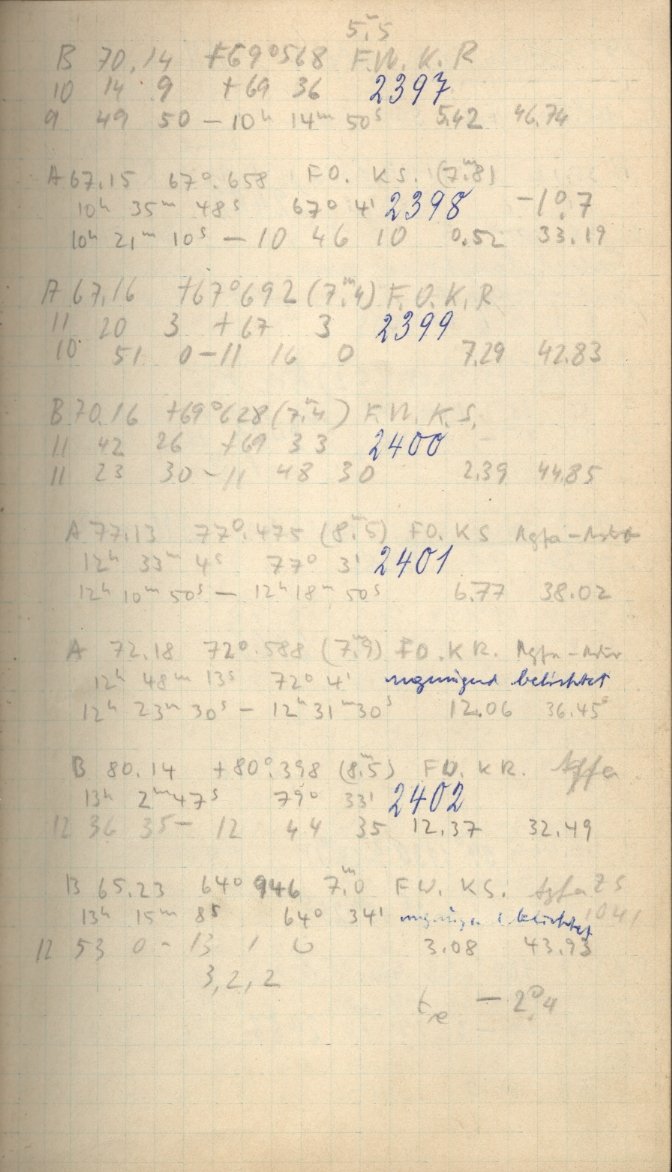 5ᵐ,5
B 70.14 +69°568 F.W. K. R
10 14 9 +69 36 2397
9 49 50 – 10ʰ 14ᵐ 50ˢ 5.42 46.74
A 67.15 67°.658 FO. KS. (7ᵐ.8)
10ʰ 35ᵐ 48ˢ 67° 4' 2398 –1°.7
10ʰ 21ᵐ 10ˢ – 10 46 10 0.52 33.19
A 67.16 +67°692 (7ᵐ.4) F.O. K. R
11 20 3 +67 3 2399
10 51 0 – 11 16 0 7.29 42.83
B 70.16 +69°628 (7ᵐ.4) F.W. K.S.
11 42 26 +69 33 2400
11 23 30 – 11 48 30 2.39 44.85
A 77.13 77°.475 (8ᵐ.5) FO. KS Agfa-
12ʰ 33ᵐ 4ˢ 77° 3' 2401
12ʰ 10ᵐ 50ˢ – 12ʰ 18ᵐ 50ˢ 6.77 38.02
A 72.18 72°.588 (7ᵐ.9) FO. KR. Agfa-
12ʰ 48ᵐ 13ˢ 72° 4' ungenügend belichtet
12ʰ 23ᵐ 30ˢ – 12ʰ 31ᵐ 30ˢ 12.06 36.45
B 80.14 +80°.398 (8ᵐ.5) FW. KR. Agfa
13ʰ 2ᵐ 47ˢ 79° 33' 2402
12 36 35 – 12 44 35 12.37 32.49
B 65.23 64° 946 7ᵐ.0 FW. KS. Agfa ZS
13ʰ 15ᵐ 8ˢ 64° 34' belichtet 1041
12 53 0 – 13 1 0 3.08 43.93
3, 2, 2
– 2°.4